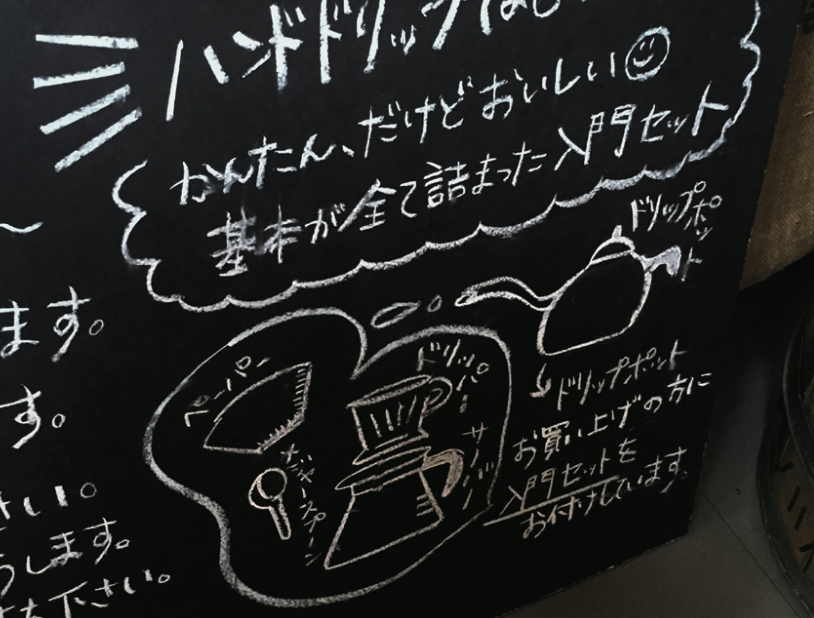 ハンドドリップはじ
かんたん、だけどおいしい
基本が全て詰まった入門セット
ドリップポット
ます。
す。
さい。
します。
下さい。
ペーパー
ドリッパー
サーバー
メジャースプーン
ドリップポット
お買い上げの方に
入門セットを
お付けしています。